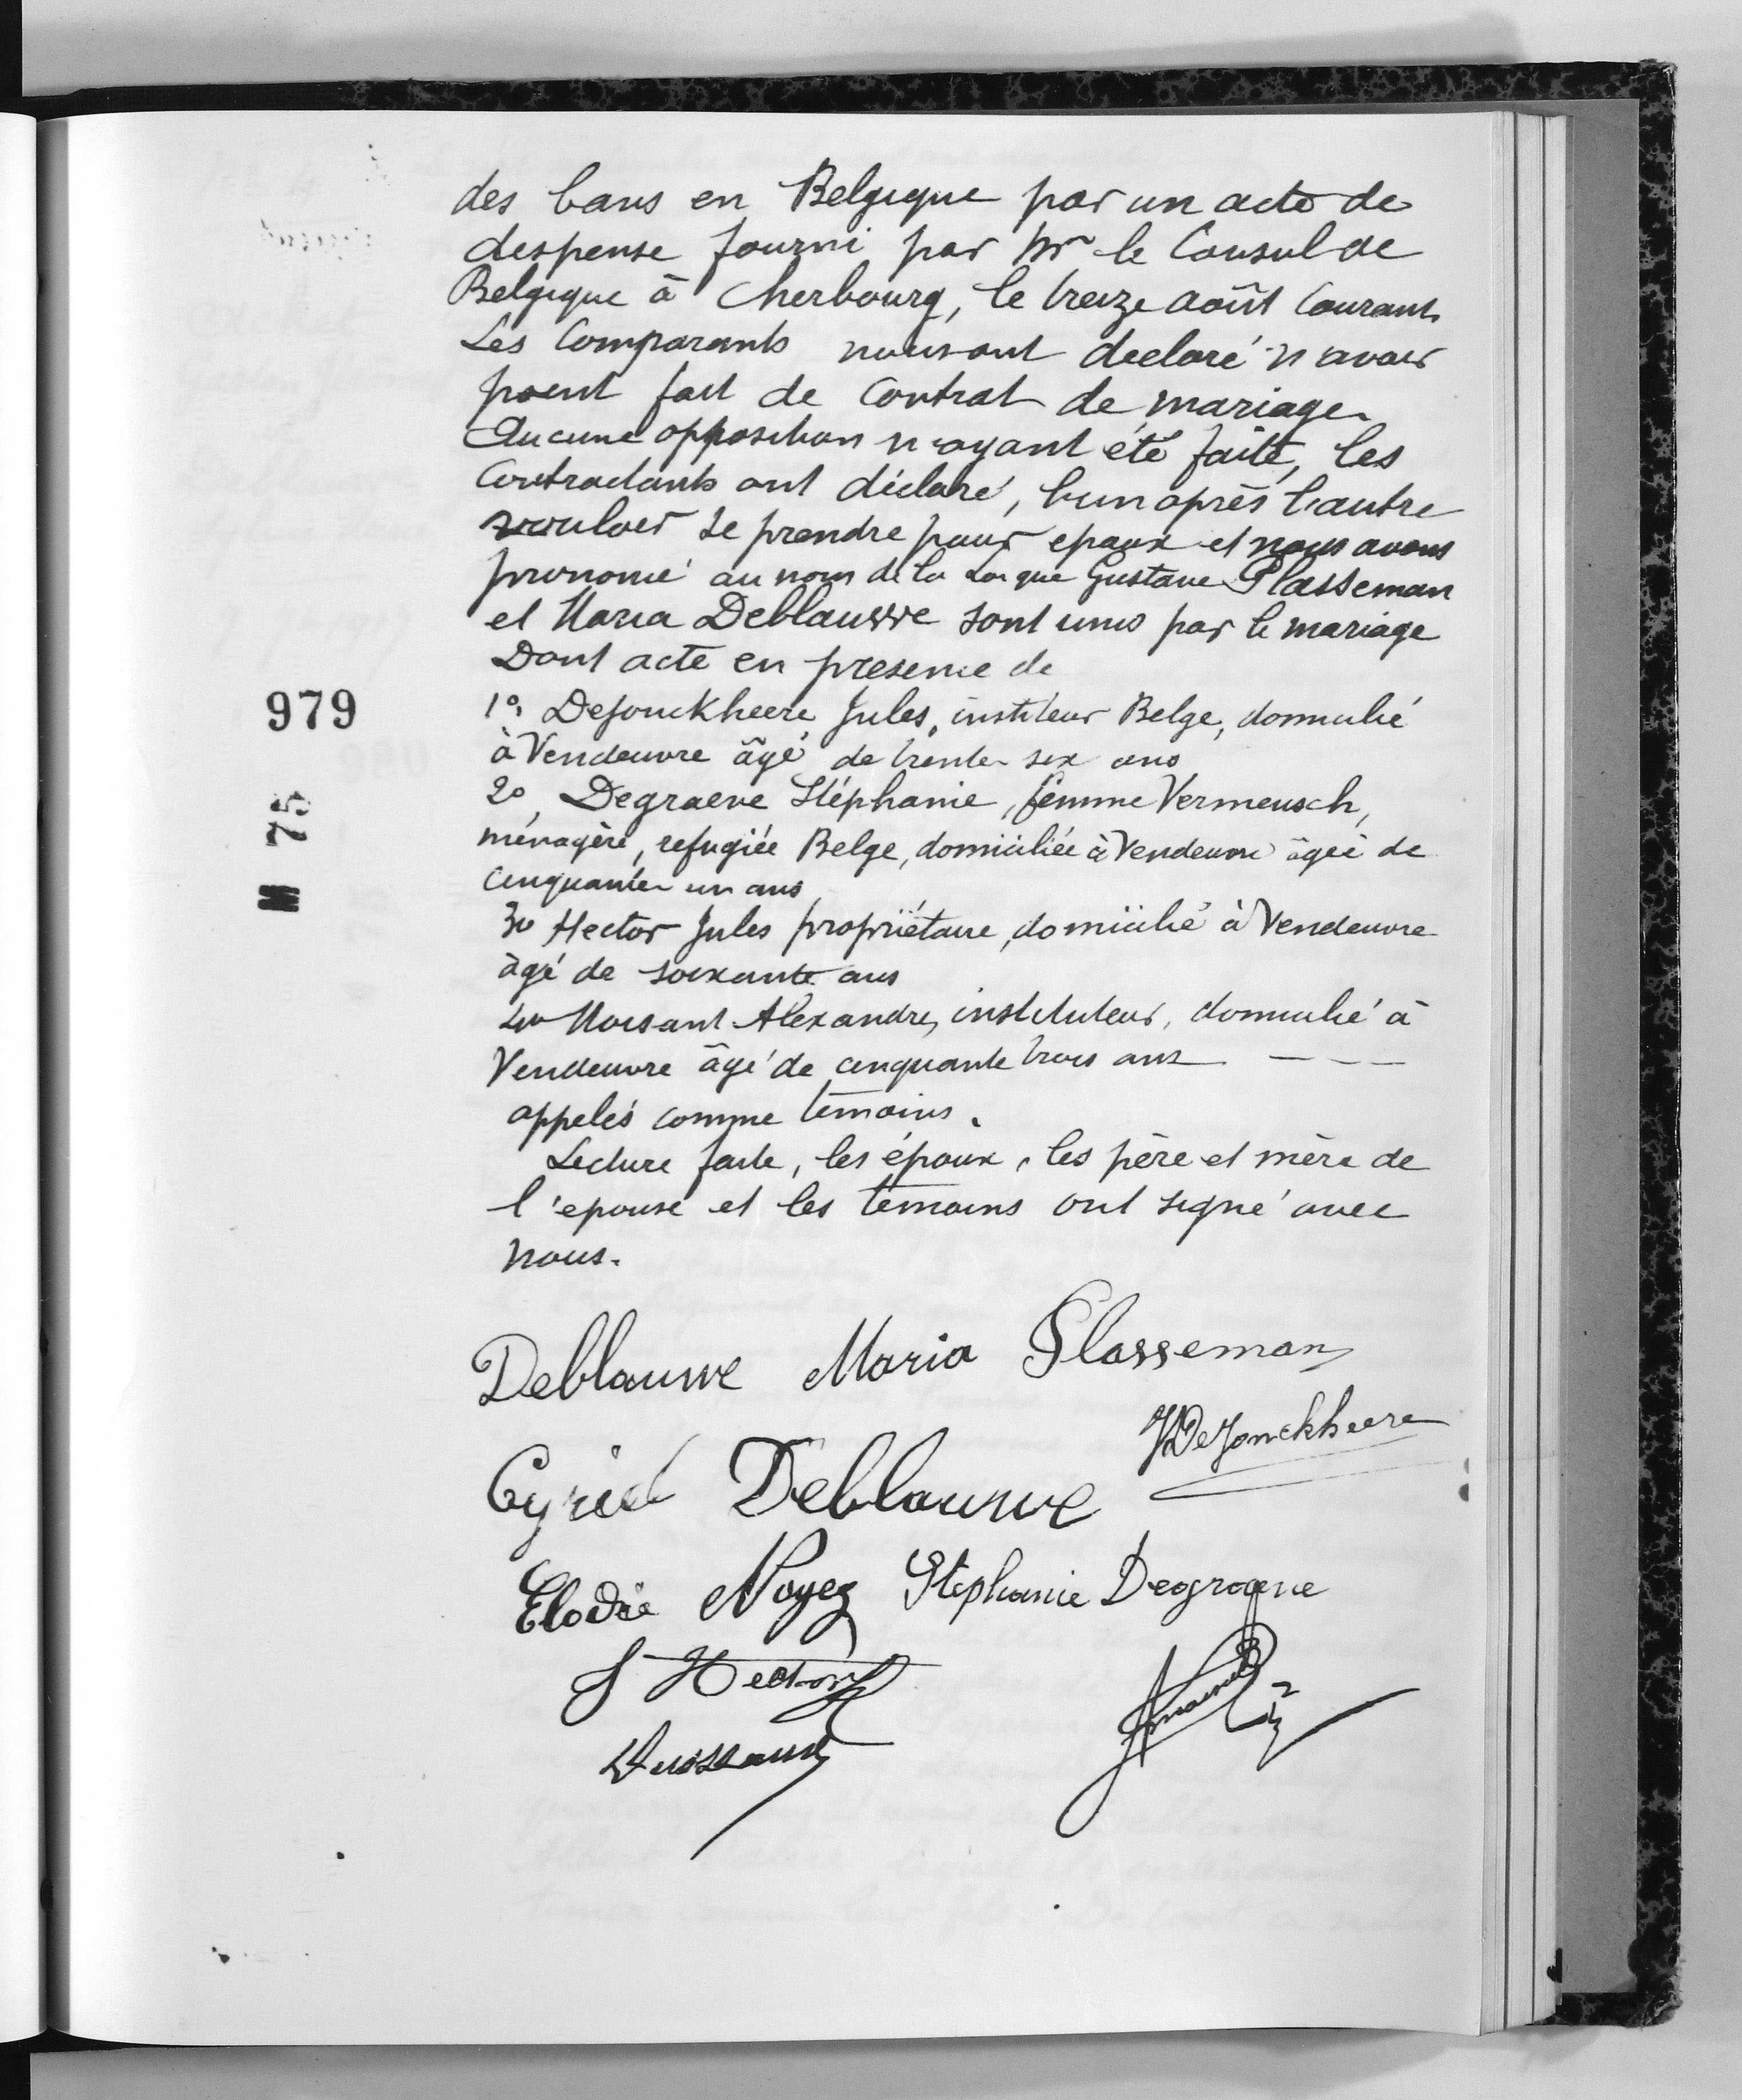 des bans en Belgique par un acte de
despense fourni par Mr le Consul de
Belgique à Cherbourg, le treize août courant.
Les Comparants nous ont déclaré n'avoir
point fait de Contrat de mariage.
Aucune opposition n'ayant été faite, les
Contractants ont déclaré, l'un après l'autre
vouloir se prendre pour epoux et nous avons
prononcé au nom de la Loi que Gustave Plasseman
et Maria Deblauwe sont unis par le mariage
Dont acte en présence de
1º, Dejonckheere Jules, institeur Belge, domicilié
à Vendeuvre âgé de trente-six ans
2º, Degraeve Stéphanie, femme Vermeusch,
ménagère, refugiée Belge, domiciliée à Vendeuvre âgée de
cinquante-un ans
3º Hector Jules propriétaire, domicilié à Vendeuvre
âgé de soixante ans
4º Moisant Alexandre, instituteur, domicilié à
Vendeuvre âgé de cinquante trois ans - - -
appelés comme témoins.
Lecture faite, les époux, les père et mère de
l'epouse et les témoins ont signé avec
nous.
979
M 75
Deblauwe Maria Plasseman
J Dejonckheere
Cyriel Deblauwe
Elodie Noyez Stephanie Degraeve
J Hector